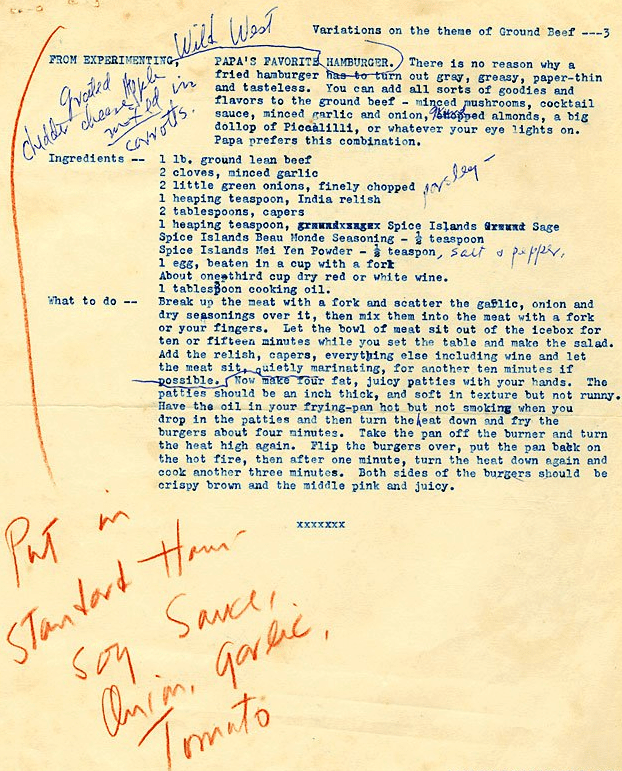 Variations on the theme of Ground Beef ---3
Wild West
FROM EXPERIMENTING PAPA'S FAVORITE HAMBURGER. There is no reason why a
fried hamburger has to turn out gray, greasy, paper-thin
and tasteless. You can add all sorts of goodies and
flavors to the ground beef - minced mushrooms, cocktail
sauce, minced garlic and onion, chopped almonds, a big
dollop of Piccalilli, or whatever your eye lights on.
Papa prefers this combination.
grated Apple
chedder cheese
mixed in
carrotts.
Ingredients -- 1 lb. ground lean beef
2 cloves, minced garlic
2 little green onions, finely chopped parsley -
1 heaping teaspoon, India relish
2 tablespoons, capers
1 heaping teaspoon, Spice Islands Sage
Spice Islands Beau Monde Seasoning - ½ teaspoon
Spice Islands Mei Yen Powder - ½ teaspon, salt & pepper,
1 egg, beaten in a cup with a fork
About one-third cup dry red or white wine.
1 tablespoon cooking oil.
What to do -- Break up the meat with a fork and scatter the garlic, onion and
dry seasonings over it, then mix them into the meat with a fork
or your fingers. Let the bowl of meat sit out of the icebox for
ten or fifteen minutes while you set the table and make the salad.
Add the relish, capers, everything else including wine and let
the meat sit, quietly marinating, for another ten minutes if
possible. Now make four fat, juicy patties with your hands. The
patties should be an inch thick, and soft in texture but not runny.
Have the oil in your frying-pan hot but not smoking when you
drop in the patties and then turn the heat down and fry the
burgers about four minutes. Take the pan off the burner and turn
the heat high again. Flip the burgers over, put the pan back on
the hot fire, then after one minute, turn the heat down again and
cook another three minutes. Both sides of the burgers should be
crispy brown and the middle pink and juicy.
xxxxxxx
Put in
Standard Ham-
Soy Sauce,
Onion, Garlic,
Tomato